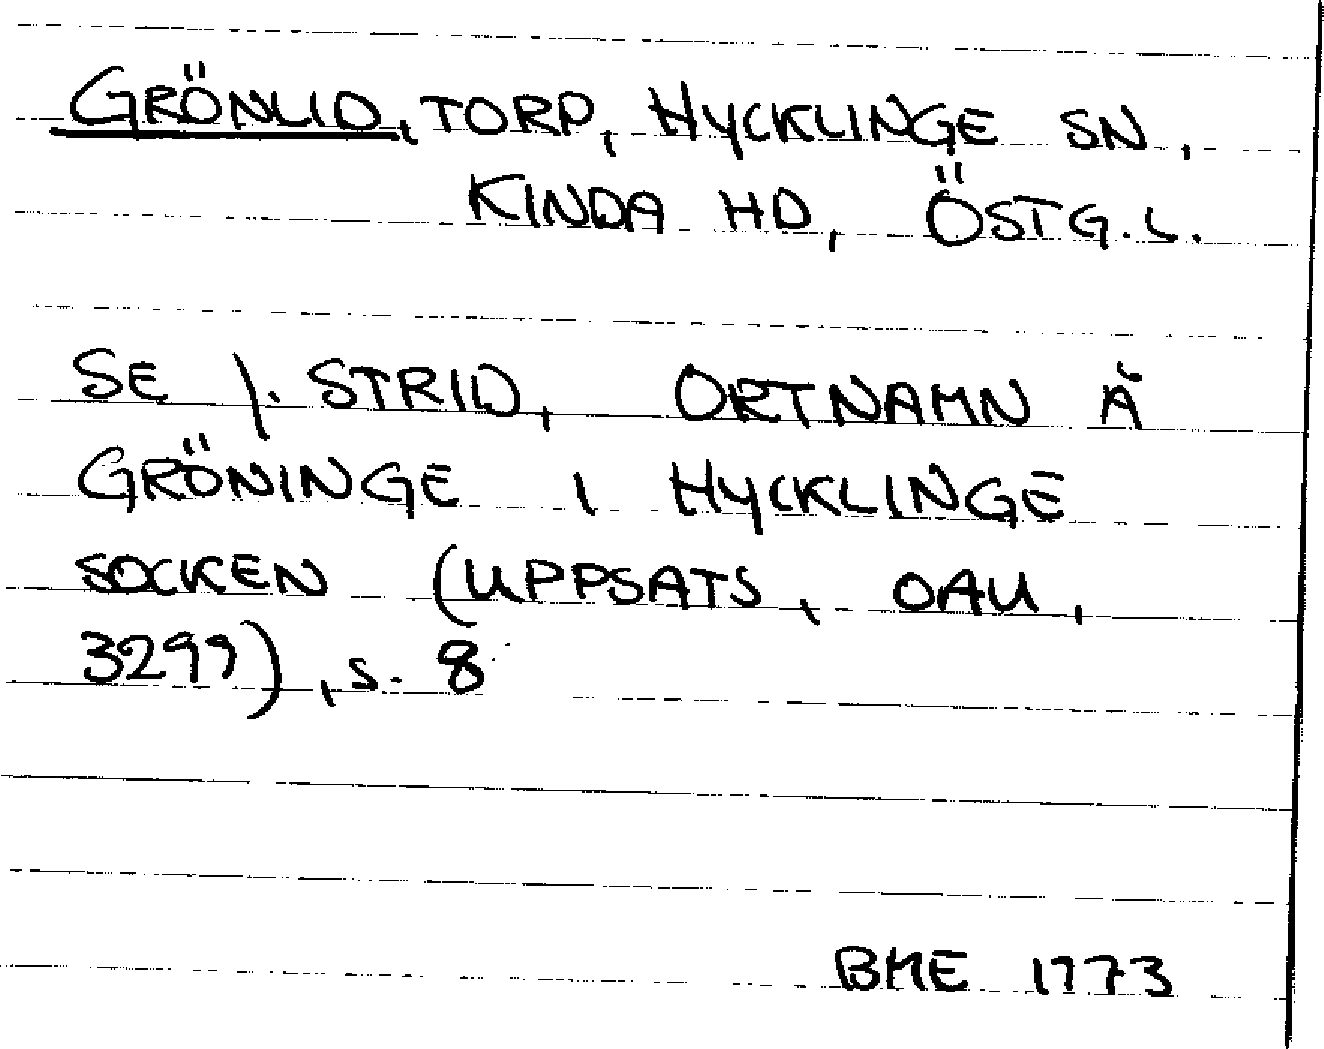 GRÖNLID, TORP, HYCKLINGE SN,
KINDA HD, ÖSTG.L.
SE I. STRID, ORTNAMN Å
GRÖNINGE I HYCKLINGE
SOCKEN (UPPSATS, OAU,
3299), s. 8
BME 1973